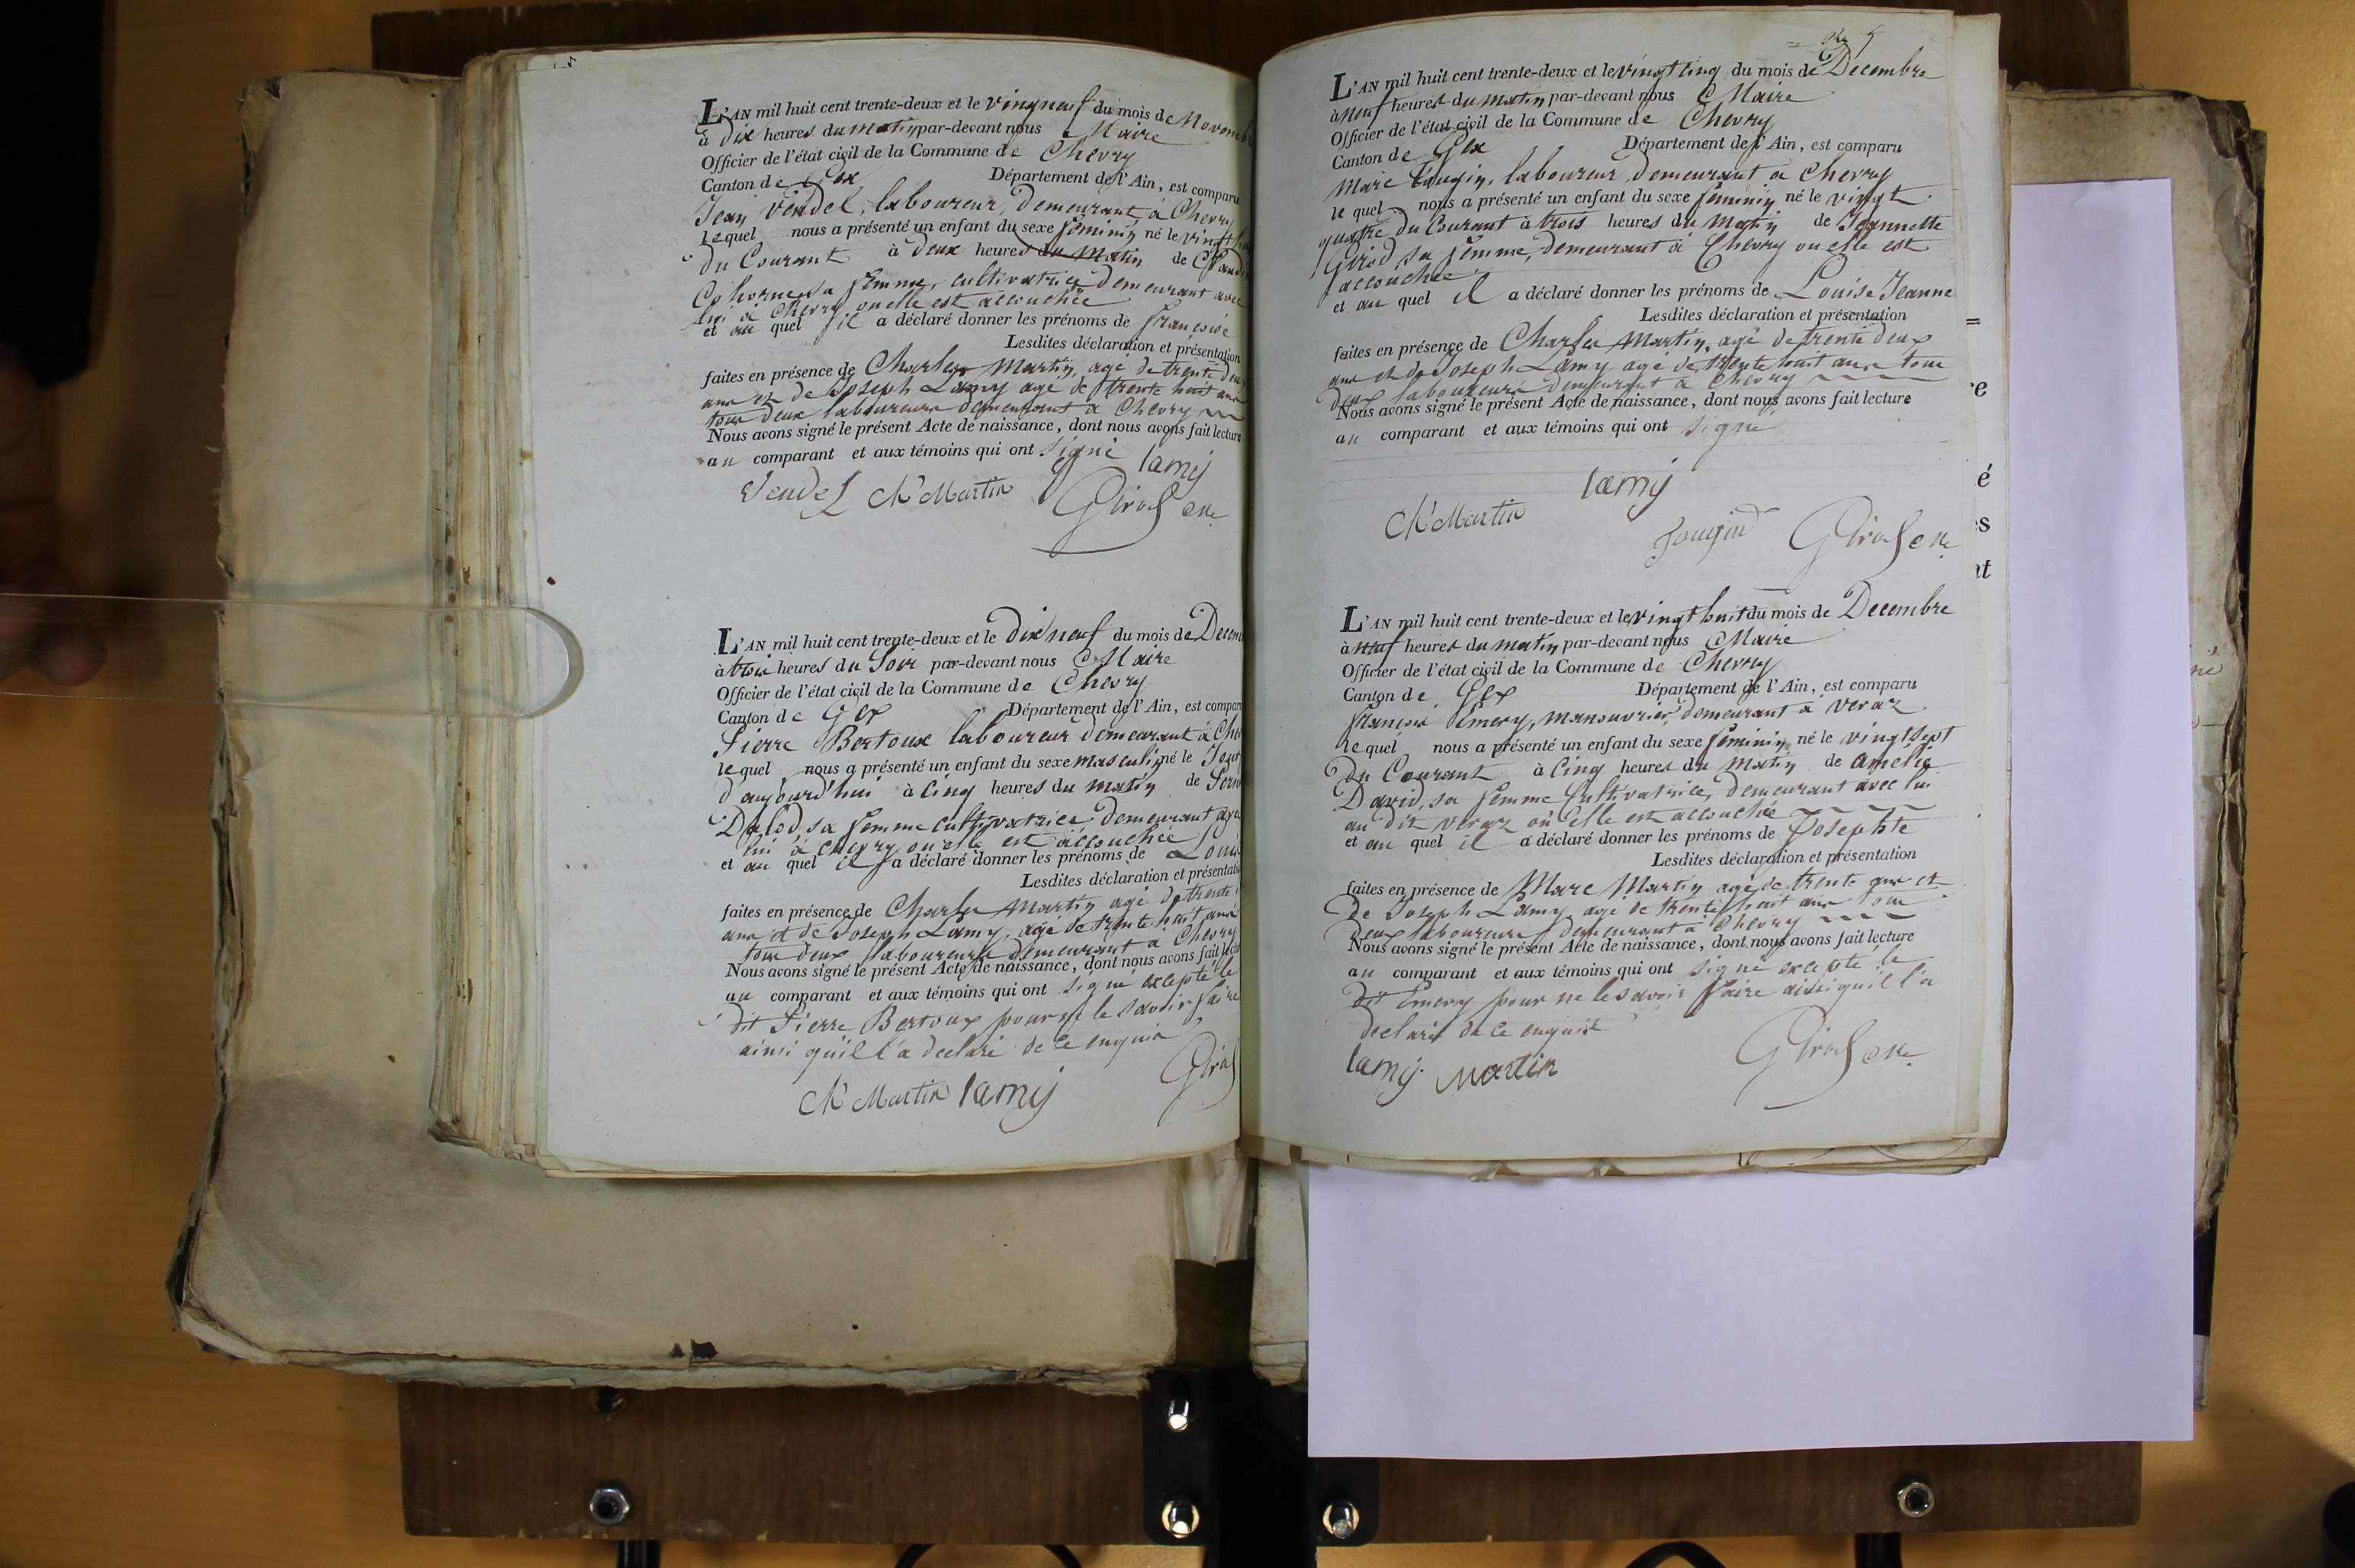 L'AN mil huit cent trente-deux et le vingneuf du mois de Novemb
à dix heures du matin par-devant nous Maire
Officier de l'état civil de la Commune de Chevry
Canton de Gex Département de l'Ain, est comparu
Jean Vendel, laboureur, demeurant à Chevry
lequel nous a présenté un enfant du sexe féminin né le vingt
du Courant à deux heures du matin de
sa femme, cultivatrice demeurant avec
lui à Chevry ou elle est accouchée
et au quel il a déclaré donner les prénoms de françoise
Lesdites déclaration et présentation
faites en présence de Charles Martin, agé de trente deux
ans et de Joseph Lamy agé de trente huit ans
tous deux laboureurs demeurant à Chevry
Nous avons signé le présent Acte de naissance, dont nous avons fait lecture
au comparant et aux témoins qui ont signé
lamy
Vendel Ch Martin Girod
L'AN mil huit cent trente-deux et le dix neuf du mois de Decem
à trois heures du Soir par-devant nous Maire
Officier de l'état civil de la Commune de Chevry
Canton de Gex Département de l'Ain, est compar
Pierre Bertoux laboureur demeurant à Che
lequel nous a présenté un enfant du sexe masculin né le Jour
d'aujourd'hui à cinq heures du matin de
Dalod, sa femme cultivatrice demeurant avec
lui à Chevry ou elle est accouchée
et au quel il a déclaré donner les prénoms de Louis
Lesdites déclaration et présentati
faites en présence de Charles Martin agé de trente
ans et de Joseph Lamy, agé de trente huit ans
tous deux laboureurs demeurant à Chevry
Nous avons signé le présent Acte de naissance, dont nous avons fait lectu
au comparant et aux témoins qui ont signé excepté le
dit Pierre Bertoux pour ne le savoir faire
ainsi qu'il l'a declaré de ce enquis
Ch Martin lamy Girod
L'AN mil huit cent trente-deux et le vingt cinq du mois de Decembre
à neuf heures du matin par-devant nous Maire
Officier de l'état civil de la Commune de Chevry
Canton de Gex Département de l'Ain, est comparu
Marc Fougin, laboureur, demeurant à Chevry
le quel nous a présenté un enfant du sexe féminin né le vingt
quatre du Courant à trois heures du matin de Jeannette
Girod, sa femme, demeurant à Chevry ou elle est
accouchée
et au quel il a déclaré donner les prénoms de Louise Jeanne
Lesdites déclaration et présentation
faites en présence de Charles Martin, agé de trente deux
ans et de Joseph Lamy agé de trente huit ans tous
deux laboureurs demeurant à Chevry
Nous avons signé le présent Acte de naissance, dont nous avons fait lecture
au comparant et aux témoins qui ont signé
lamy
Ch Martin fougin Girod
L'AN mil huit cent trente-deux et le vingt huit du mois de Decembre
à neuf heures du matin par-devant nous Maire
Officier de l'état civil de la Commune de Chevry
Canton de Gex Département de l'Ain, est comparu
françois Emery, manouvrier demeurant à Veraz
le quel nous a présenté un enfant du sexe féminin né le vingt sept
du Courant à cinq heures du matin de Amélie
David, sa femme cultivatrice, demeurant avec lui
au dit veraz où elle est accouchée
et au quel il a déclaré donner les prénoms de Josephte
Lesdites déclaration et présentation
faites en présence de Marc Martin agé de trente ans et
de Joseph Lamy agé de trente huit ans tous
deux laboureurs demeurant à Chevry
Nous avons signé le présent Acte de naissance, dont nous avons fait lecture
au comparant et aux témoins qui ont signé excepté le
dit Emery pour ne le savoir faire ainsi qu'il l'a
declaré de ce enquis
lamy Martin Girod